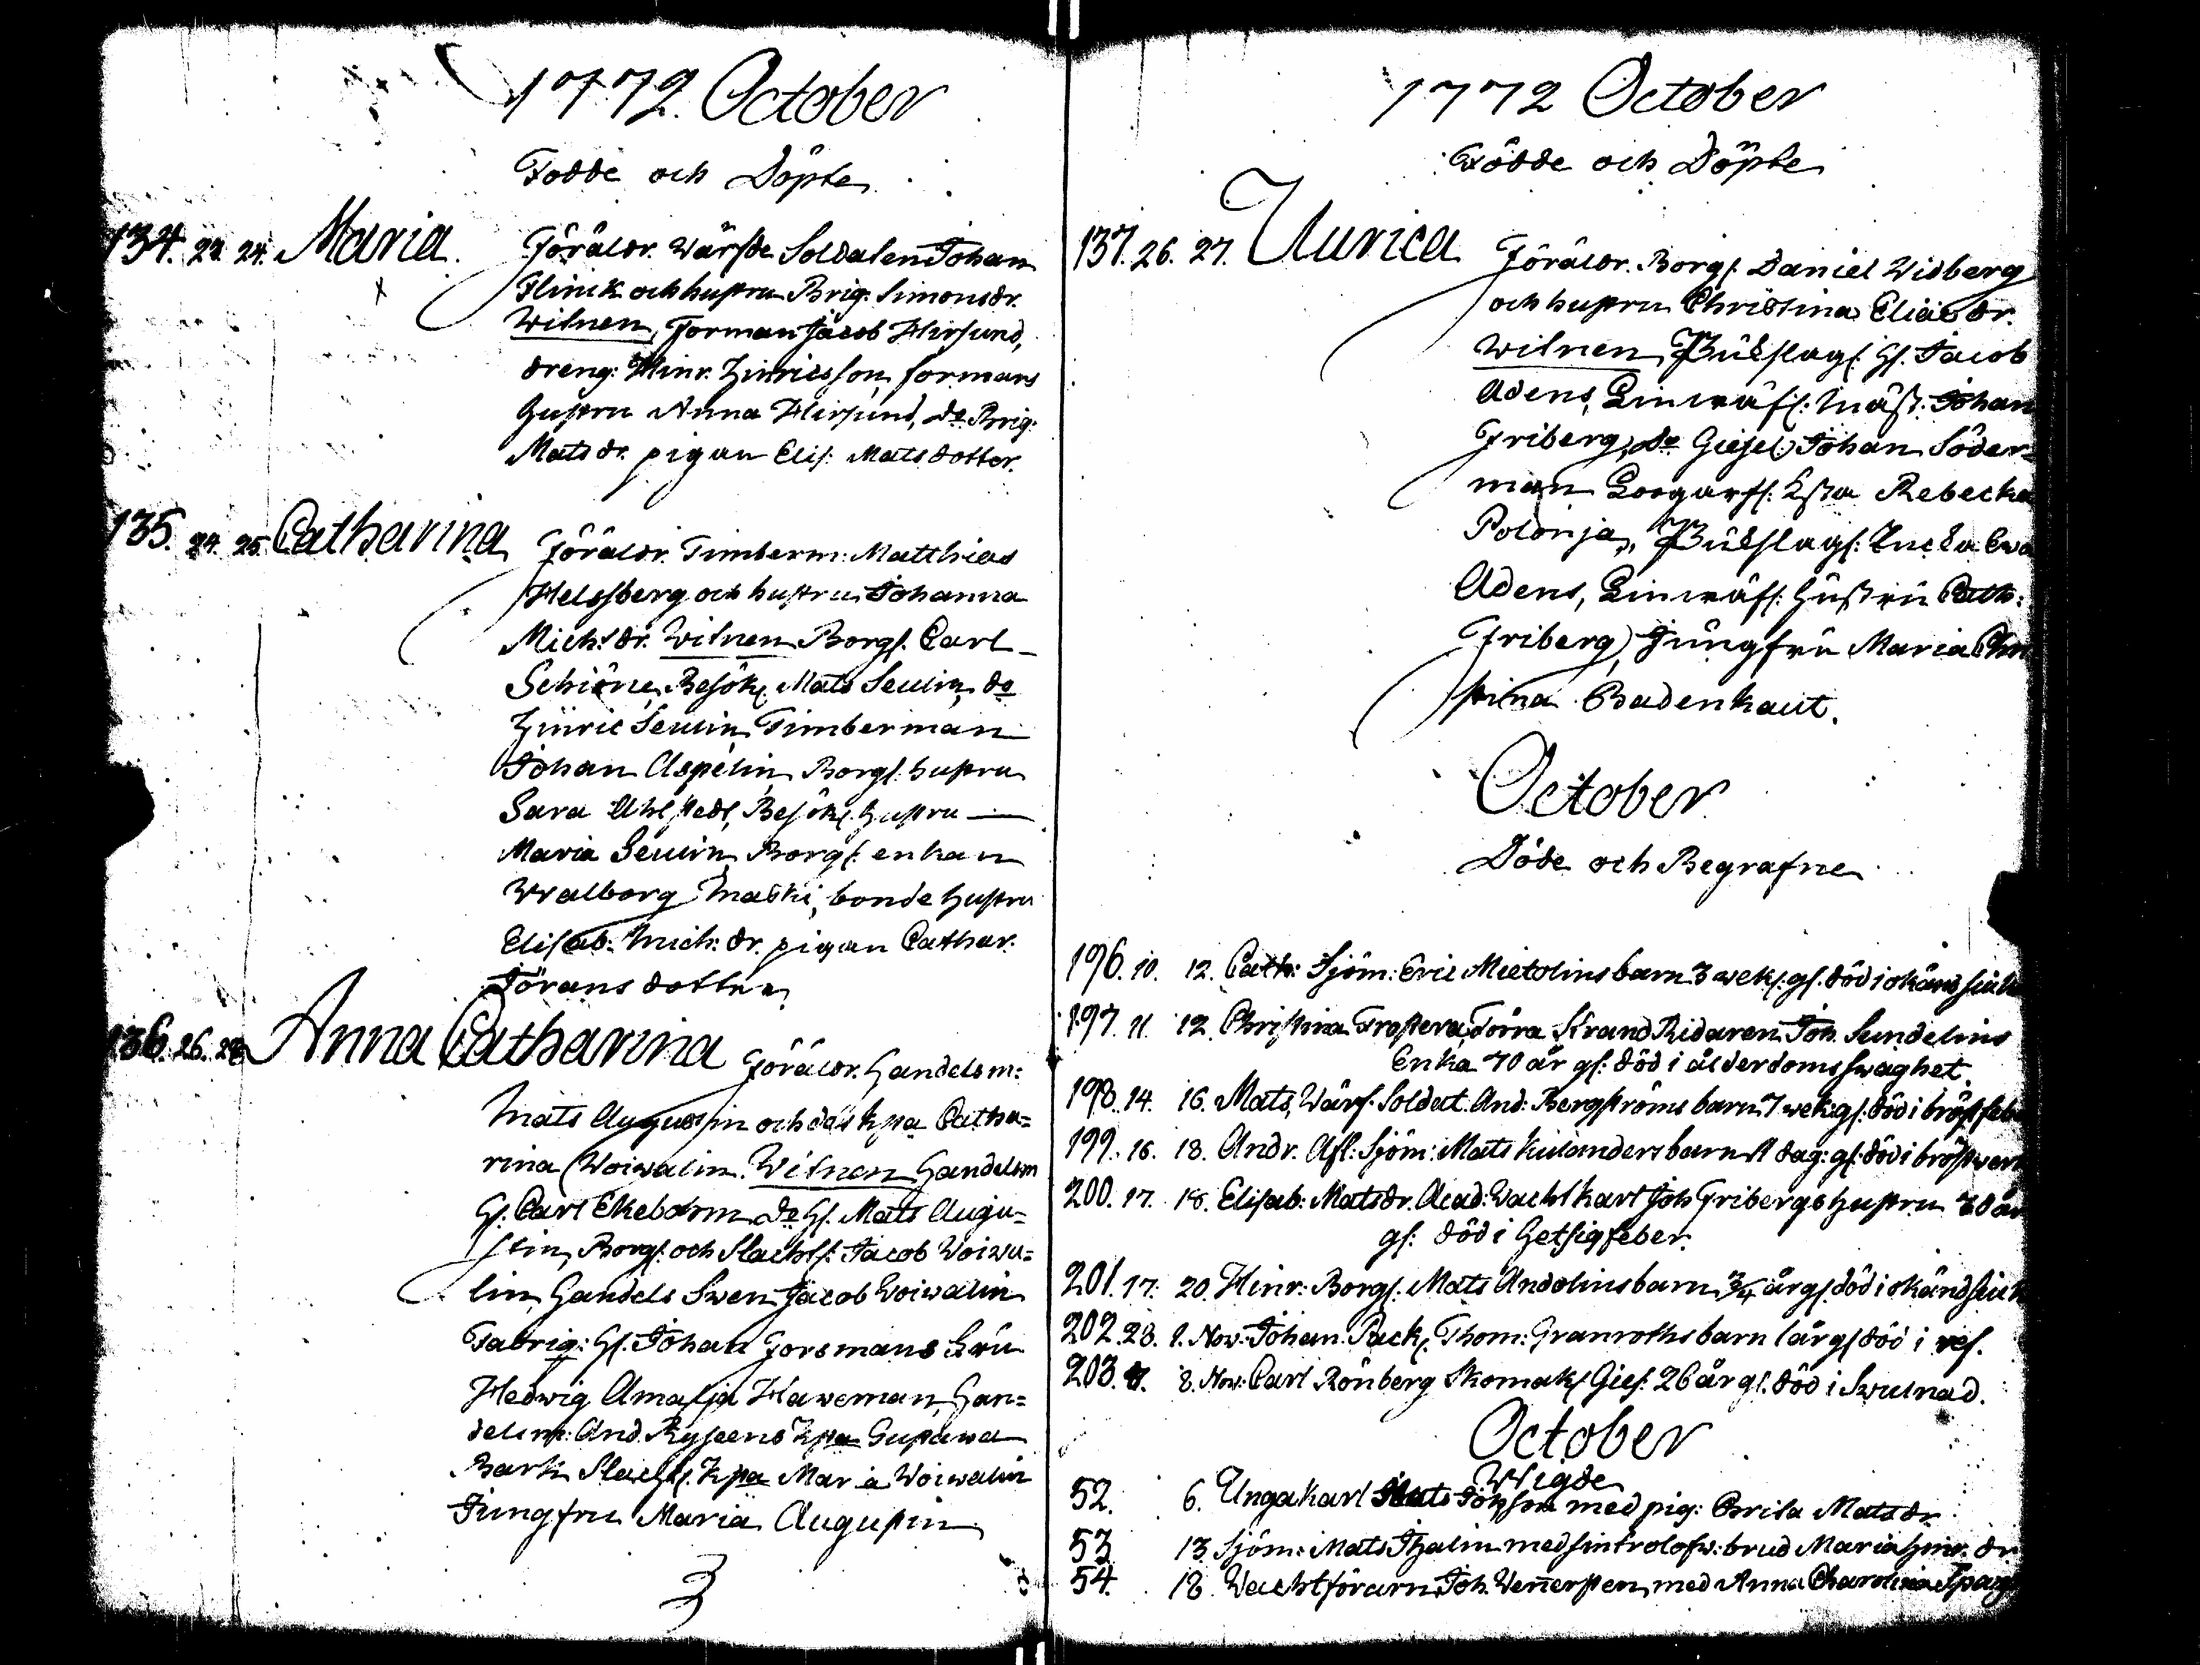 1772. October
Fodde och Döpte
134. 23. 24. Maria. Föräldr. Wärfde Soldaten Johan
Flinck och hustru Brig: Simonsdr.
Witnen, Forman Jacob Hirsund,
dreng: Hinr. Hinricsson, formans
hustru Anna Hirsund, do Brig:
Matsdr. pigan Elis: Mats dotter.
135. 24. 25. Catharina Föräldr. Timberm: Matthias
Helssberg och hustru Johanna
Mich:dr. Witnen Borgs. Carl
Schöne, Besök. Mats Seulin, do
Hinric Seulin, Timberman
Johan Aspelin, Borgs. hustru
Sara Uhlstedt, Besöks. hustru
Maria Seulin, Borgs: enkan
Walborg Maski, bonde hustru
Elisab: Mich: dr. pigan Cathar.
Jörans dotter
136. 26. 28. Anna Catharina Föräldr. Handelsm:
Mats Augustin och dess k:sta Catha=
rina Woiwalin. Witnen Handelsm
H. Carl Ekebom do H. Mats Augu=
stin, Borgs. och Slachts: Jacob Woiwa=
lin, Handels Swen Jacob Woiwalin
Fabriq: H. Johan Forsmans Fru
Hedwig Amalja Haweman, Han=
delsm: And. Ryseens k:sta Gustawa
Bark, Slachts. k:sta Maria Woiwalin
Jungfru Maria Augustin
1772 October
Födde och Döpte
137. 26. 27. Ulrica Föräldr. Borgs. Daniel Widberg
och hustru Christina Eliædr.
Witnen, H. Jacob
Adens, Linwäfs: Mäst. Johan
Friberg, do Giesel Johan Söder=
man Rebecka
Polonja,
Adens, Linwäfs: hustru Cath:
Friberg, Jungfru Maria Chri
stina Badenhaut.
October
Döde och Begrafne
196. 10. 12. Cath: Sjöm: Eric Mietolins barn 3 wek: gl. död i okänd siuk
197. 11. 12. Christina Frostera, Förra Strand Ridaren Joh. Sundelins
Enka 70 år gl: död i ålderdoms swaghet.
198. 14. 16. Mats, Wärf. Soldat. And: Bergströms barn 7 wek: gl. död i bröstfeb
199. 16. 18. Andr. Afl: Sjöm: Mats Kulanders barn 11 dag: gl: död i bröstwer
200. 17. 18. Elisab: Matsdr. Acad: Wachtkarl Joh Fribergs hustru 30 år
gl: död i Hetsigfeber.
201. 17. 20. Hinr: Borgs: Mats Andolins barn, 3/4 år gl. död i okänd siuk
202. 28. 1. Now: Johan. Pack. Thom: Granroths barn 1 år gl död i ref.
203. 8. Now: Carl Rönberg Skomak. Gies. 26 år gl. död i Swulnad.
October
Wigde
52. 6. Ungakarl Mats Johsson med pig: Brita Matsdr
53 13 Sjöm: Mats Thalin med sin trolofw: brud Maria Hinr. dr
54. 18. Wachtförarn Joh. Wennersten, med Anna Charolina Spag